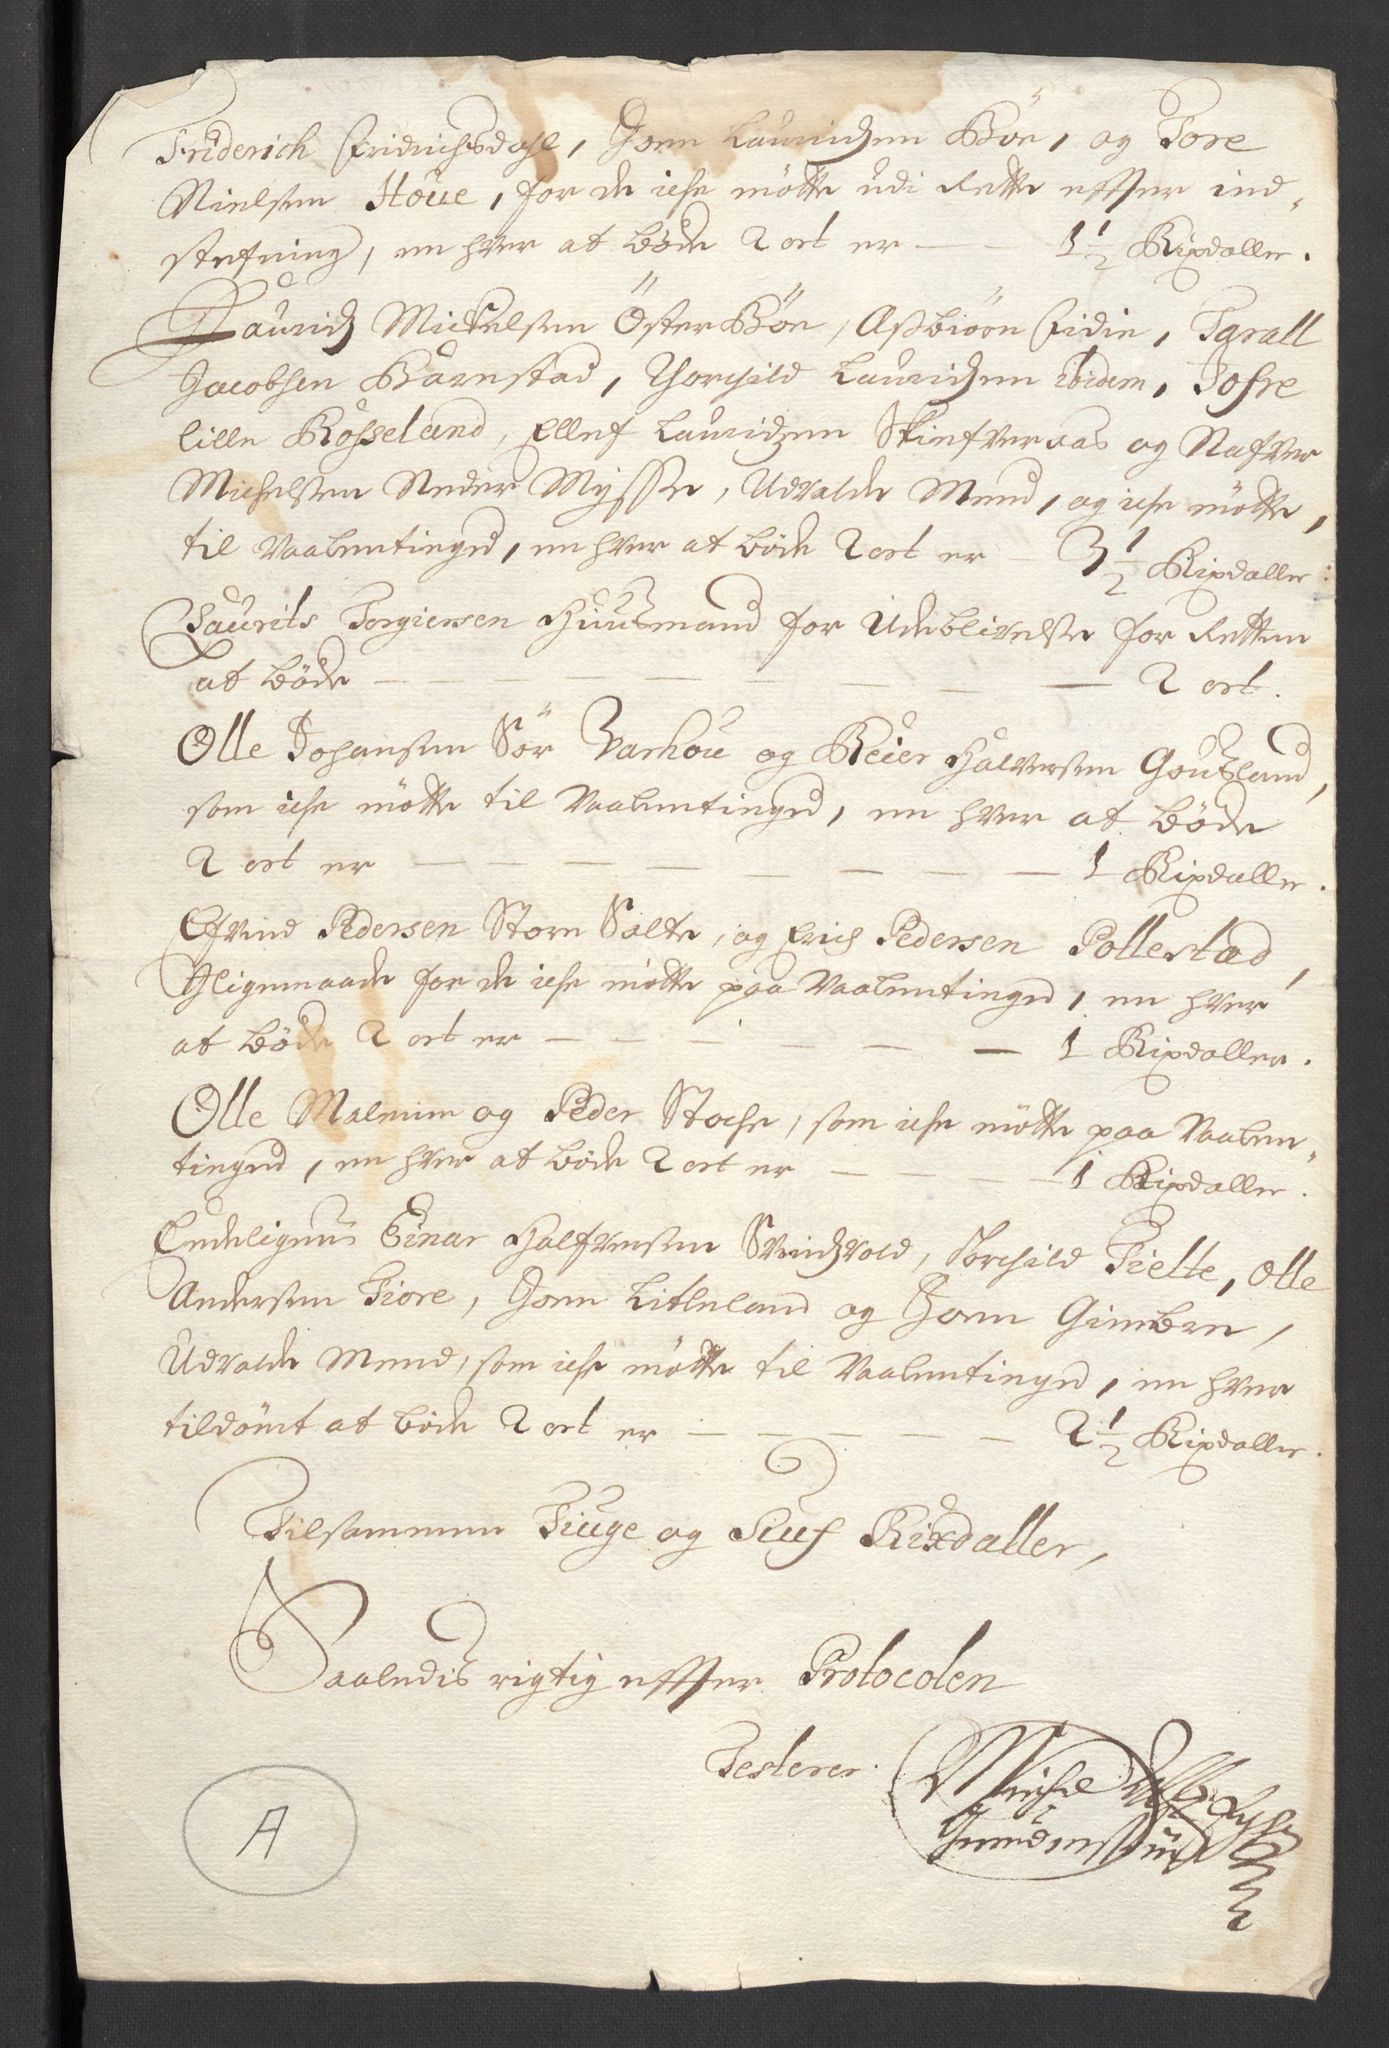 Friderich Fridrichsdahl, Jonn Lauridzen Böe, og Tore
Nielsen Höue, for de iche mötte udi Rette effter ind-
stefning, en hver at bøde 2 ort er — — 1 1/2 Rixdaller.
Lauridz Mickelsen Öster Böe, Asbiörn Eidie, Tarall
Jacobsen Bårnstad, Thorchild Lauridzen ibidem, Tofre
lille Rosseland, Ellef Lauridzen Skiefveraas og Rafver
Michelsen Neder Mysse, Udvalde Mend, og iche mötte,
til Vaabentinged, en hver at böde 2 ort er — 3 1/2 Rixdaller
Laurits Torgiersen Huusmand for Udeblivelse for Retten
at böde — — — — — — — — 2 ort.
Olle Johansen Sör Varhou og Reier Halversen Goutland,
som iche mötte til Vaabentinged, en hver at böde
2 ort er — — — — — — — — 1 Rixdaller.
Efvind Pedersen Store Salte, og Erich Pedersen Pollestad,
Iligemaade for de iche mötte paa Vaabentinged, en hver
at böde 2 ort er — — — — — 1 Rixdaller.
Olle Malmin og Peder Stoche, som iche mötte paa Vaaben-
tinged, en hver at böde 2 ort er — — — — 1 Rixdaller.
Endeligen Einar Halfversen Svindzvold, Torchild Tielte, Olle
Andersen Tiore, Jonn Litleland og Jonn Gimbre,
Udvalde Mend, som iche mötte til Vaabentinged, en hver
tildömt at böde 2 ort er — — — — — 2 1/2 Rixdaller.
Tilsammen Tiuge og Siuf Rixdaller,
Saaledis rigtig effter Protocolen
Testerer.
Michel
A